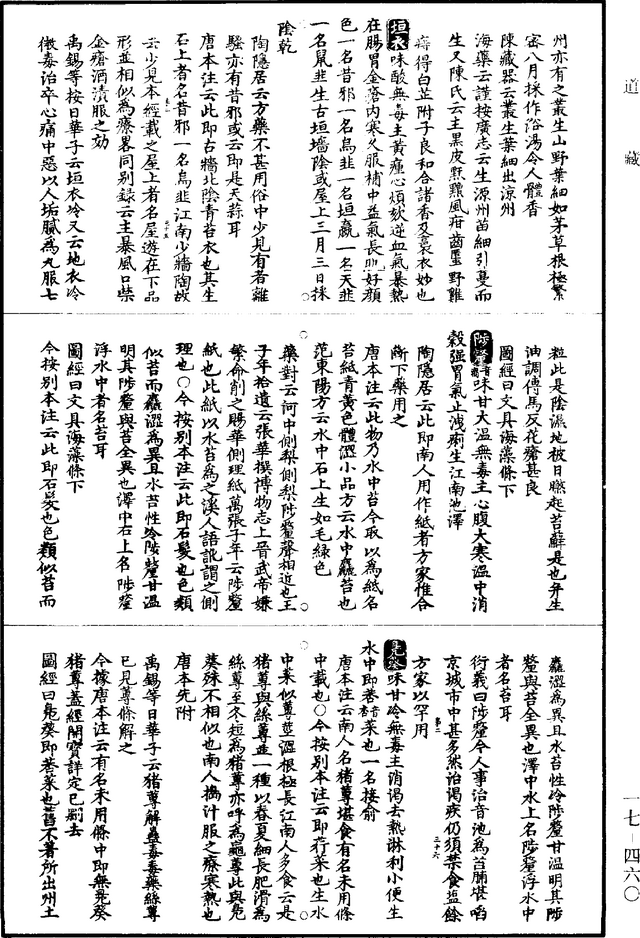 道藏
州亦有之叢生山野葉細如茅草根極繁
密八月採作俗湯令人體香
陳藏器云叢生葉細出涼州
海藥云謹按廣志云生源州苗細引蔓而
生又陳氏云主黑皮䵟䵳風疳齒䘌野雞
痔得白芷附子良和合諸香及裛衣妙也
垣衣味酸無毒主黃疸心煩欬逆血氣暴熱
在腸胃金瘡內寒久服補中益氣長肌好顏
色一名昔邪一名烏韭一名垣嬴一名天韭
一名鼠韭生古垣墻陰或屋上三月三日採
陰乾
陶隱居云方藥不甚用俗中少見有者離
騷亦有昔邪或云即是天蒜耳
唐本注云此即古牆北陰青苔衣也其生
石上者名昔邪一名烏韭江南少牆陶故
云少見本經載之屋上者名屋遊在下品
形並相似為療畧同別錄云主暴風口禁
金瘡酒漬服之効
禹錫等按日華子云垣衣冷又云地衣冷
微毒治卒心痛中惡以人垢膩為丸服七
粒此是陰濕地被日曬起苔蘚是也并生
油調傅馬反花瘡甚良
圖經曰文具海藻條下
陟釐味甘大溫無毒主心腹大寒溫中消
穀强胃氣止洩痢生江南池澤
陶隱居云此即南人用作紙者方家惟合
斷下藥用之
唐本注云此物乃水中苔今取以為紙名
苔紙青黃色體澀小品方云水中麤苔也
范東陽方云水中石上生如毛綠色
藥對云河中側梨側梨陟釐聲相近也王
子年拾遺云張華撰博物志上晉武帝嫌
繁命削之賜華側理紙萬張子年云陟釐
紙也此紙以水苔為之溪人語訛謂之側
理也○今按別本注云此即石髮也色類
似苔而麤澀為異且水苔性冷陟釐甘溫
明其陟釐與苔全異也澤中石上名陟釐
浮水中者名苔耳
圖經曰文具海藻條下
今按別本注云此即石髮也色類似苔而
麤澀為異且水苔性冷陟釐甘溫明其陟
釐與苔全異也澤中水上名陟釐浮水中
者名苔耳
衍義曰陟釐今人事治音池為苔脯堪啗
京城市中甚多然治渴疾仍須禁食鹽餘
方家以罕用
鳧葵味甘冷無毒主消渴去熱淋利小便生
水中即莕菜也一名接余
唐本注云南人名猪蓴堪食有名未用條
中載也○今按別本注云即荇菜也生水
中葉似蓴莖澀根極長江南人多食云是
猪蓴與絲蓴並一種以春夏細長肥滑為
絲蓴至冬短為猪蓴亦呼為龜蓴此與鳧
葵殊不相似也南人搗汁服之療寒熱也
唐本先附
禹錫等日華子云猪蓴解蠱毒毒藥絲蓴
已見蓴條解之
今據唐本注云有名未用條中即無鳧葵
猪蓴蓋經開寶詳定已刪去
圖經曰鳧葵即莕菜也舊不著所出州土
一七－四六〇